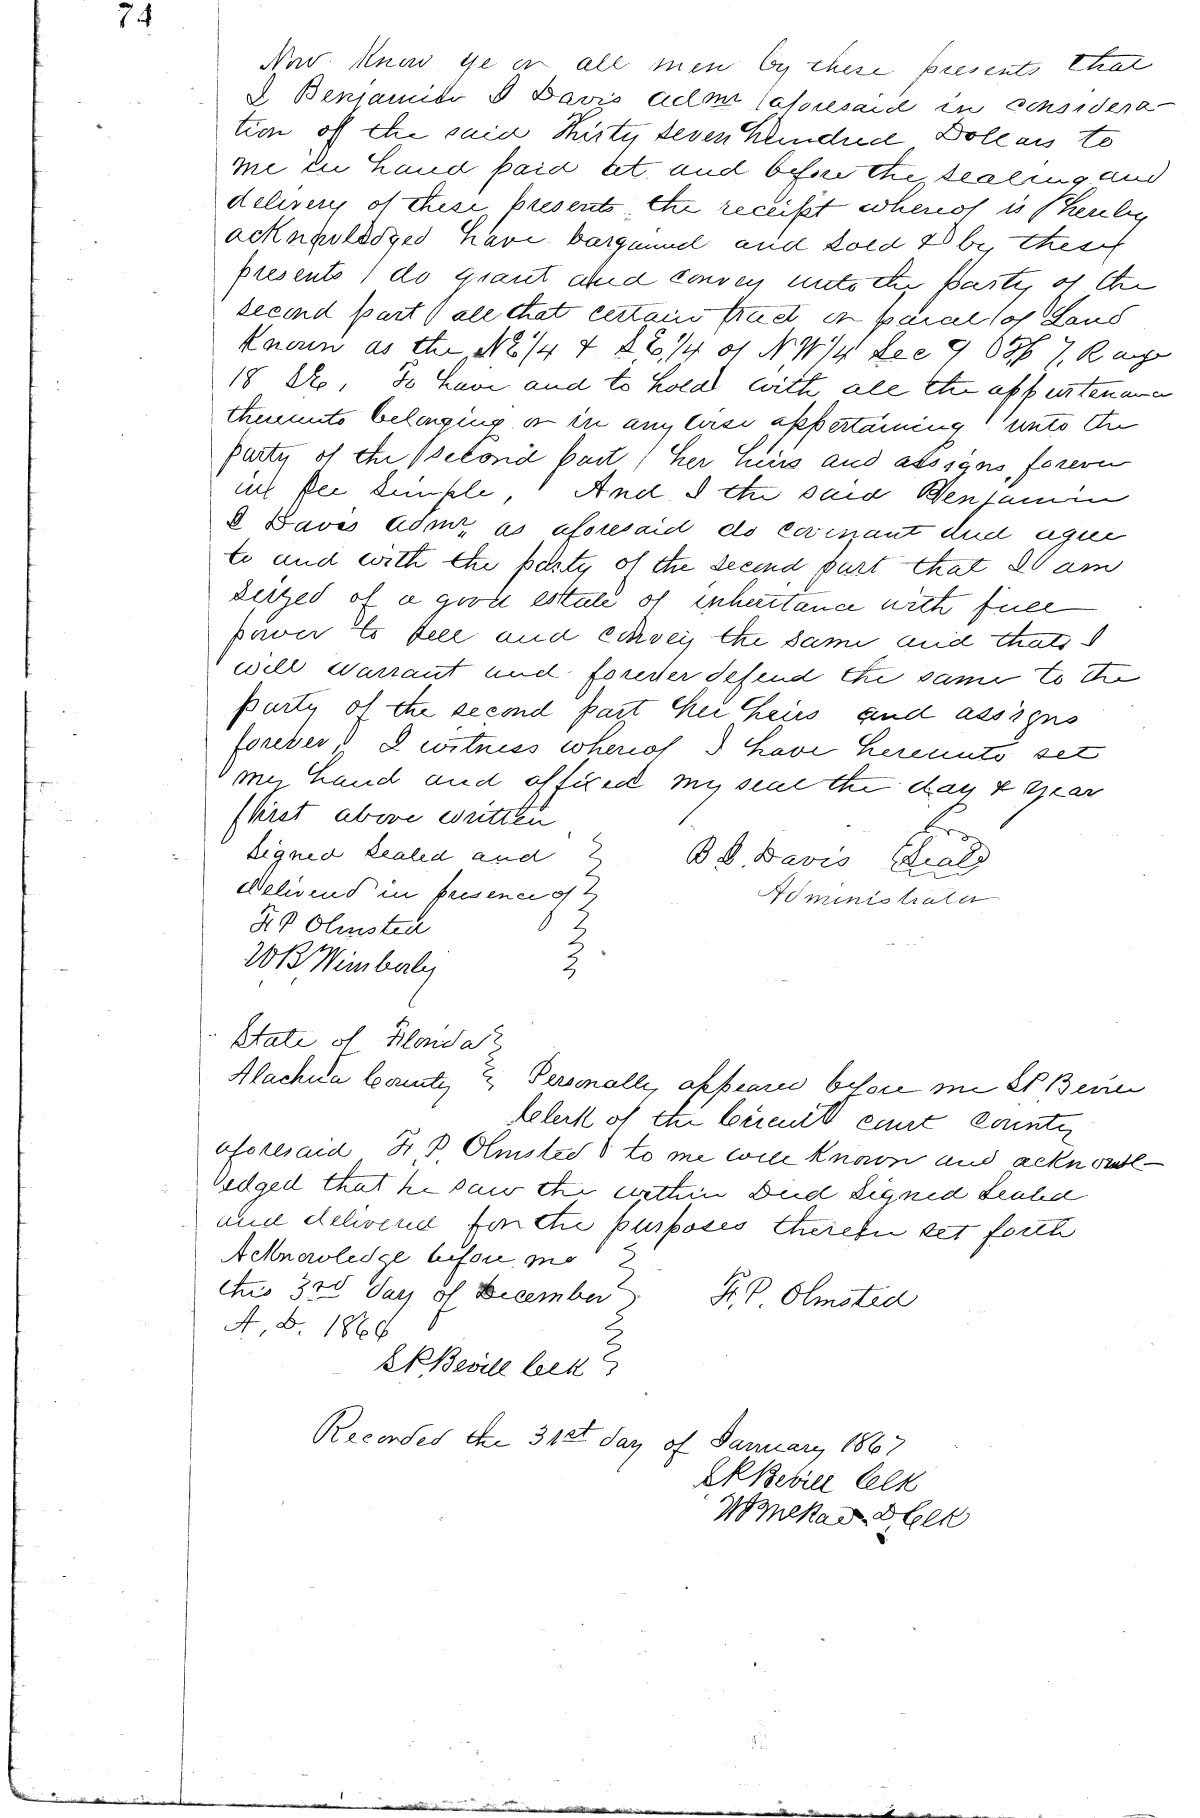 74
Now Know ye or all men by these presents that
I Benjamin I Davis admr aforesaid in considera-
tion of the said Thirty seven hundred Dollars to
me in hand paid at and before the sealing and
delivery of these presents the receipt whereof is hereby
acknowledged have bargained and sold & by these
presents do grant and convey unto the party of the
second part all that certain tract or parcel of Land
Known as the NE 1/4 & SE 1/4 of NW 1/4 Sec 9 Tp 7, Range
18 SE, To have and to hold with all the appurtenance
thereunto belonging or in any wise appertaining unto the
party of the second part her heirs and assigns forever
in fee simple, And I the said Benjamin
I Davis admr, as aforesaid do covenant and agree
to and with the party of the second part that I am
seized of a good estate of inheritance with full
power to sell and convey the same and that I
will warrant and forever defend the same to the
party of the second part her heirs and assigns
forever, I witness whereof I have hereunto set
my hand and affixed my seal the day & year
first above written
Signed Sealed and B I. Davis Seal
delivered in presence of Administrator
F P Olmsted
W B Wimberly
State of Florida
Alachua County Personally appeared before me S P Bevill
Clerk of the Circuit court County
aforesaid F. P. Olmsted to me well Known and acknowl-
edged that he saw the within Deed Signed Sealed
and delivered for the purposes therein set forth
Acknowledge before me
this 3rd day of December F. P. Olmsted
A, D. 1866
S P. Bevill Clk
Recorded the 31st day of January 1867
S P Bevill Clk
D Clk